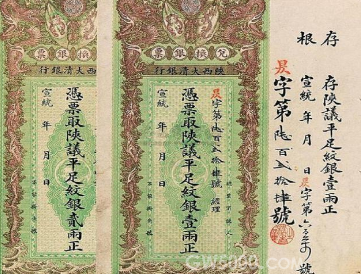 存根
存陝議平足紋銀壹兩正
宣統 年 月 日 昃字第六
昃字第陸百貳拾肆號
兌換銀票
陝西大清銀行
昃字第陸百貳拾肆號 經理
憑票取陝議平足紋銀壹兩正
宣統 年 月 日
兌換銀票
陝西大清銀行
憑票取陝議平足紋銀貳兩正
宣統 年 月 日